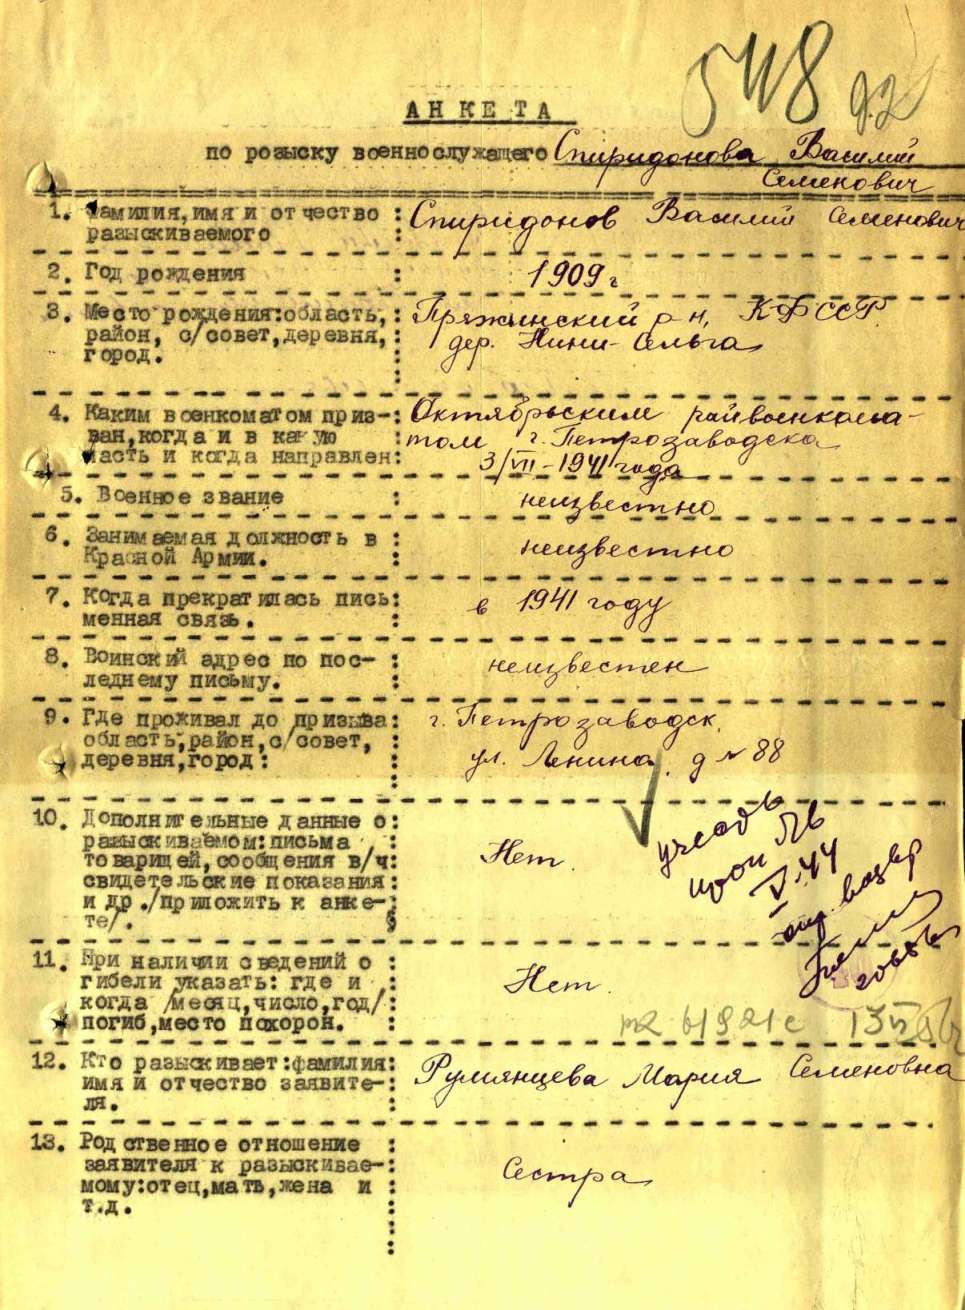 548
АНКЕТА
по розыску военнослужащего Спиридонова Василий
Семенович
1. Фамилия,имя и отчество : Спиридонов Василий Семенович
разыскиваемого :
2. Год рождения : 1909 г
3. Место рождения:область, : Пряжинский р-н, КФССР
район, с/совет,деревня, : дер. Нини-Сельга
город. :
4. Каким военкоматом приз-: Октябрьским райвоенкома-
ван,когда и в какую : том г. Петрозаводска
часть и когда направлен: 3/VII-1941 года
5. Военное звание : неизвестно
6. Занимаемая должность в : неизвестно
Красной Армии. :
7. Когда прекратилась пись: в 1941 году
менная связь. :
8. Воинский адрес по пос- : неизвестен
леднему письму. :
9. Где проживал до призыва: г. Петрозаводск,
область,район,с/совет, : ул. Ленина, д № 88
деревня,город: :
10. Дополнительные данные о:
разыскиваемом:письма : Нет.
товарищей,сообщения в/ч:
свидетельские показания :
и др./приложить к анке-:
те/. :
V.44
11. При наличии сведений о :
гибели указать: где и : Нет.
когда /месяц,число,год/:
погиб,место похорон. :
12. Кто разыскивает:фамилия: Румянцева Мария Семеновна
имя и отчество заявите-:
ля. :
13. Родственное отношение :
заявителя к разыскивае-: Сестра
мому:отец,мать,жена и :
т.д. :